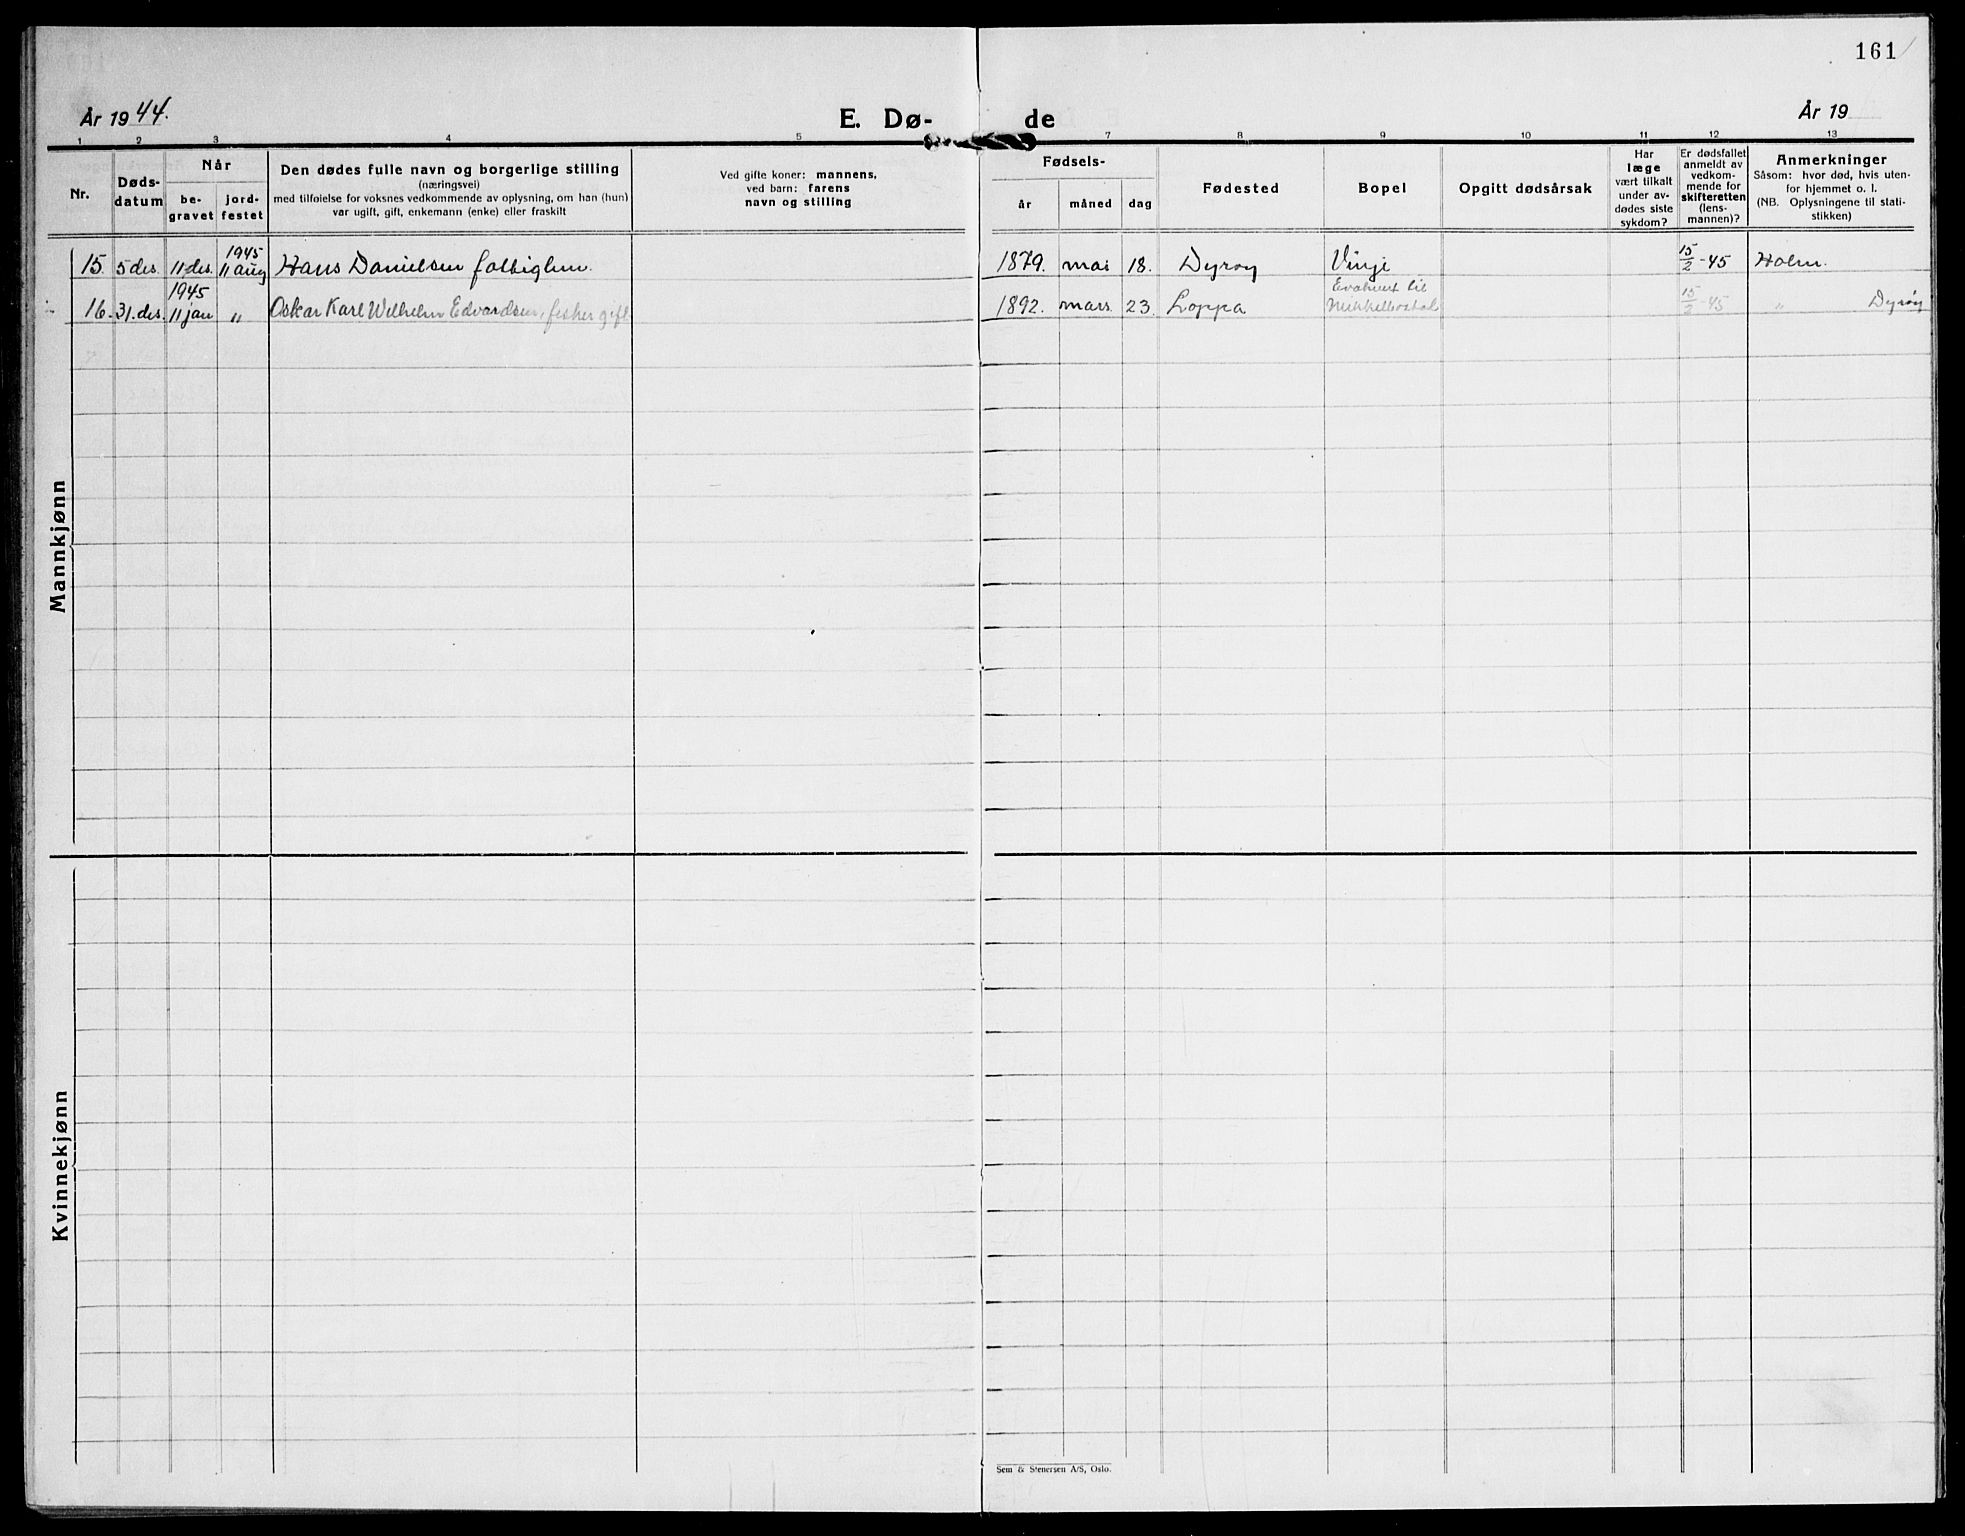 161
År 1944.
E. Dø-
de
År 19
1 2 3 4 5 7 8 9 10 11 12 13
Nr.
Døds-
datum
Når
be-
gravet
jord-
festet
Den dødes fulle navn og borgerlige stilling
(næringsvei)
med tilføielse for voksnes vedkommende av oplysning, om han (hun)
var ugift, gift, enkemann (enke) eller fraskilt
Ved gifte koner: mannens,
ved barn: farens
navn og stilling
Fødsels-
år måned dag
Fødested
Bopel
Opgitt dødsårsak
Har
læge
vært tilkalt
under av-
dødes siste
sykdom?
Er dødsfallet
anmeldt av
vedkom-
mende for
skifteretten
(lens-
mannen)?
Anmerkninger
Såsom: hvor død, hvis uten-
for hjemmet o. l.
(NB. Oplysningene til stati-
stikken)
1945
15. 5 des. 11. des. 11 aug Hans Danielsen 1879. mai 18. Dyrøy Vinje 15/2-45 Holm.
1945 Evakuert til
16. 31. des. 11 jan " Oskar Karl Wilhelm Edvardsen, fisker gift 1892. mars 23. Loppa Mikkelbostad 15/2-45 " Dyrøy
Mannkjønn
Kvinnekjønn
Sem & Stenersen A/S, Oslo.